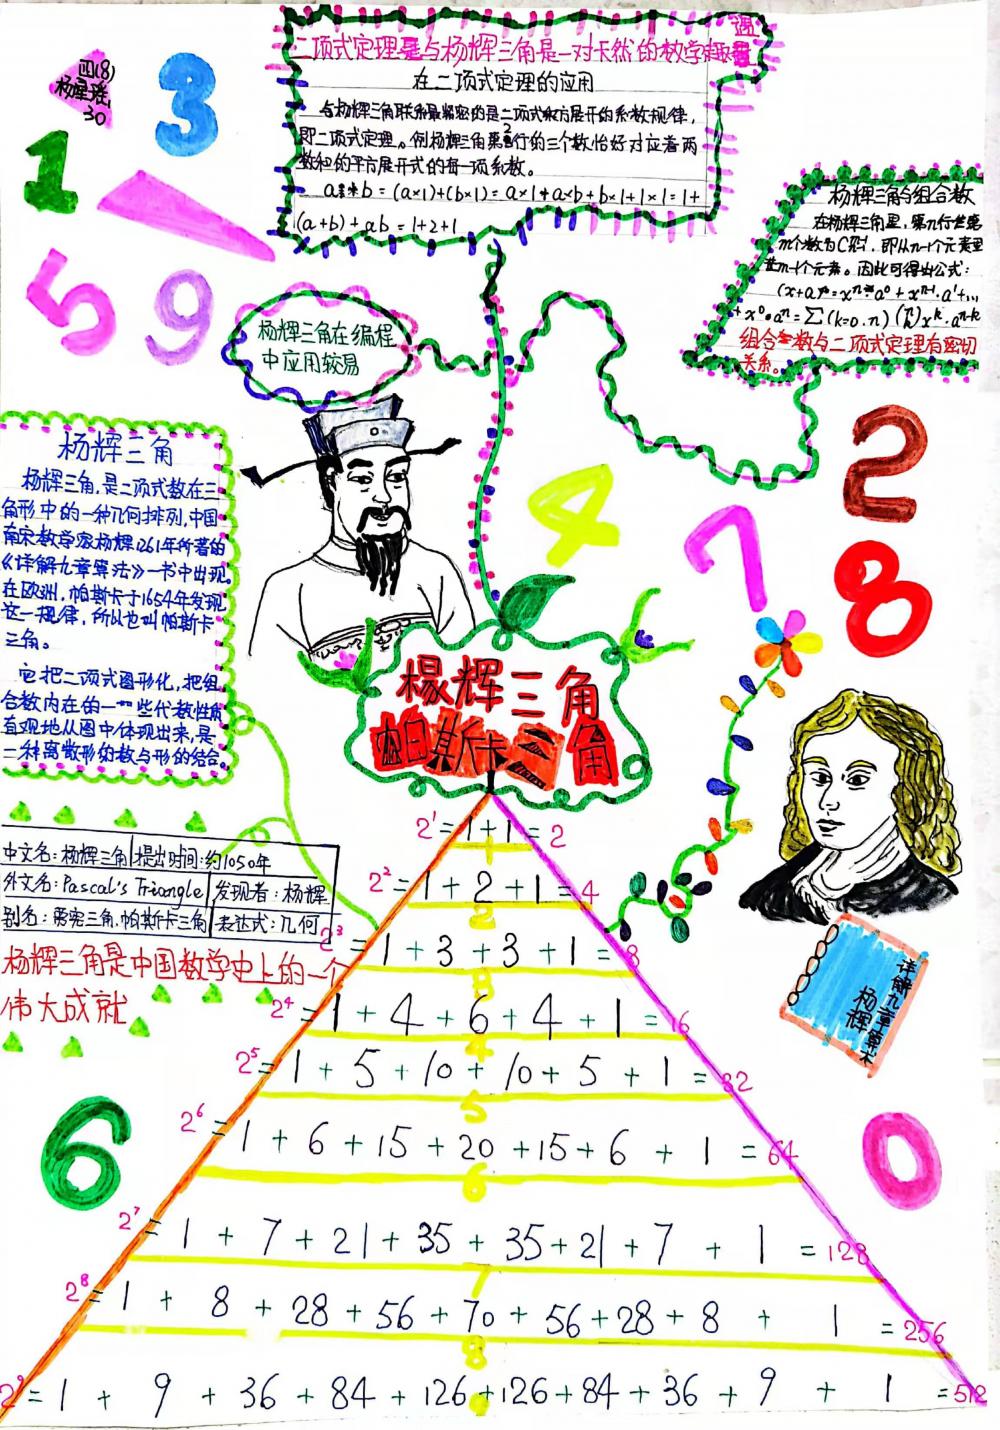 四(8)
杨星瑶
30
3
1
5
9
二项式定理与杨辉三角是一对天然的数学趣遇
在二项式定理的应用
与杨辉三角联系最紧密的是二项式乘方展开的系数规律,
即二项式定理。例杨辉三角第2行的三个数恰好对应着两
数和的平方展开式的每一项系数。
(a+b)+ab=1+2+1
杨辉三角与组合数
关系。
组合数与二项式定理有密切
杨辉三角在编程
中应用较易
杨辉三角
杨辉三角,是二项式数在三
角形中的一种几何排列,中国
南宋数学家杨辉1261年所著的
《详解九章算法》一书中出现。
在欧洲,帕斯卡于1654年发现
这一规律,所以也叫帕斯卡
三角。
它把二项式图形化,把组
合数内在的一些代数性质
直观地从图中体现出来,是
一种离散形的数与形的结合。
4
7
2
8
楊辉三角
帕斯卡三角
中文名:杨辉三角 提出时间:约1050年
外文名:Pascal's Triangle 发现者:杨辉
别名:贾宪三角.帕斯卡三角 表达式:几何
杨辉三角是中国数学史上的一个
伟大成就
详解九章算术
杨辉
6
0
2¹=1+1=2
1
2²=1+2+1=4
2
2³=1+3+3+1=8
3
2⁴=1+4+6+4+1=16
4
2⁵=1+5+10+10+5+1=32
5
2⁶=1+6+15+20+15+6+1=64
6
2⁷=1+7+21+35+35+21+7+1=128
7
2⁸=1+8+28+56+70+56+28+8+1=256
8
2⁹=1+9+36+84+126+126+84+36+9+1=512